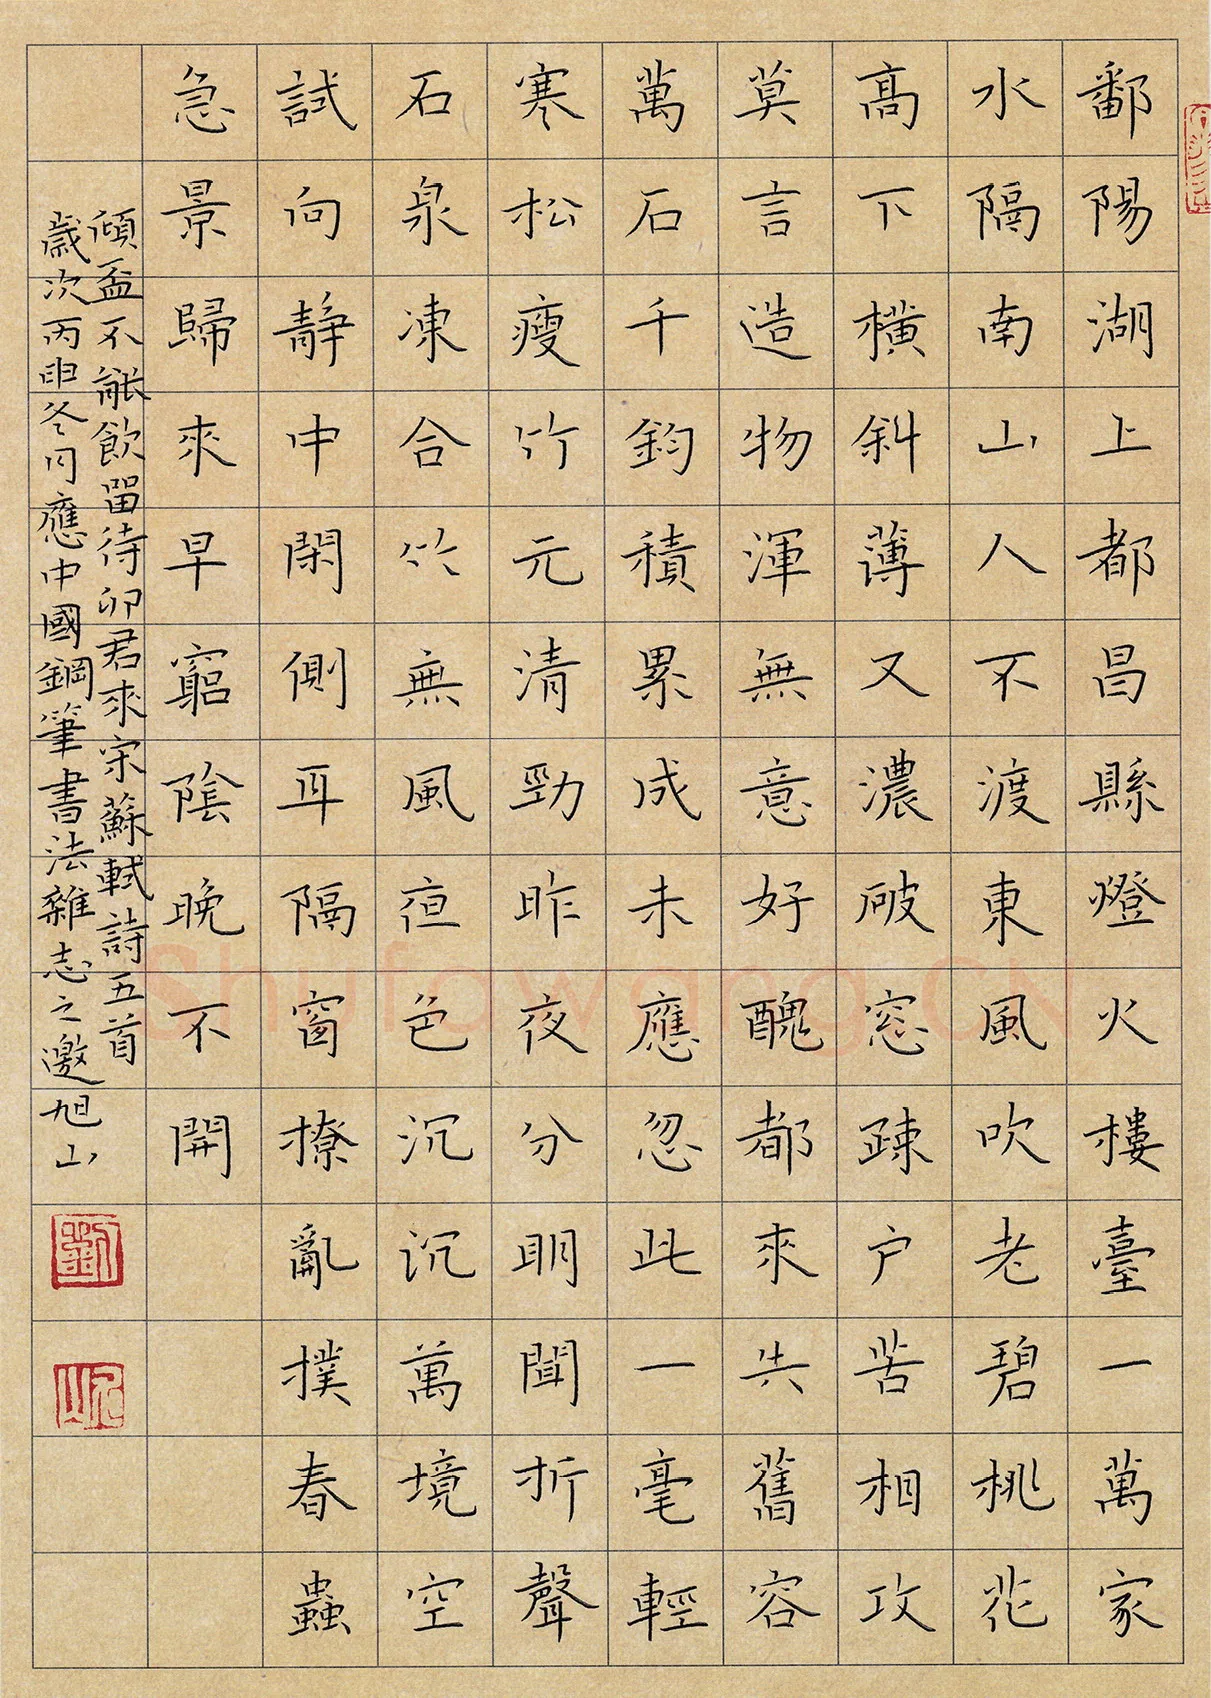 鄱陽湖上都昌縣燈火樓臺一萬家
水隔南山人不渡東風吹老碧桃花
高下橫斜薄又濃破窓疎户苦相攻
莫言造物渾無意好醜都來共舊容
萬石千鈞積累成未應忽此一毫輕
寒松瘦竹元清勁昨夜分明聞折聲
石泉凍合竹無風夜色沉沉萬境空
試向靜中閑側耳隔窗撩亂撲春蟲
急景歸來早窮陰晚不開
傾盃不能飲留待卯君來宋蘇軾詩五首
歲次丙申冬月應中國鋼筆書法雜志之邀旭山
劉
旭山
Shufawang.CN